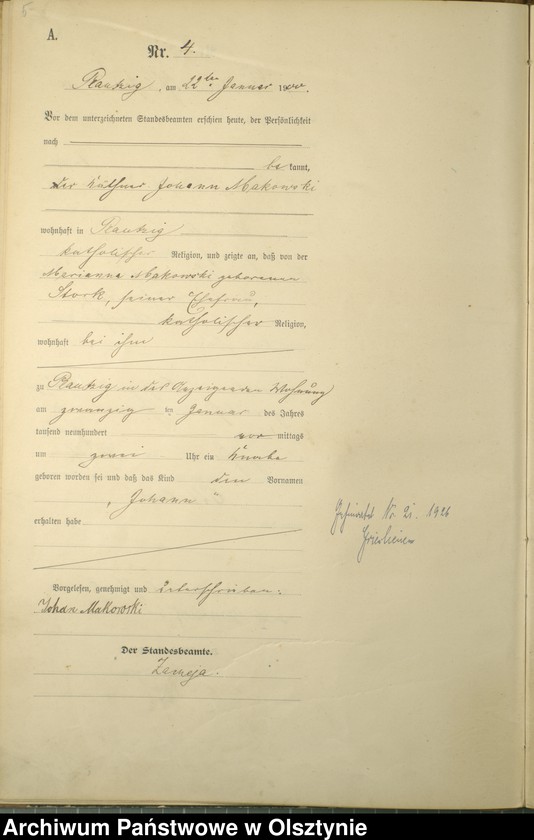 A.
Nr. 4.
am 22ten Januar 1900.
Vor dem unterzeichneten Standesbeamten erschien heute, der Persönlichkeit
nach
bekannt,
der Käthner Johann Makowski
wohnhaft in
katholischer Religion, und zeigte an, daß von der
Marianna Makowski geborenen
Stork, seiner Ehefrau,
katholischer Religion,
wohnhaft bei ihm
zu in der Wohnung
am zwanzig ten Januar des Jahres
tausend neunhundert vormittags
um zwei Uhr ein Knabe
geboren worden sei und daß das Kind den Vornamen
„Johann“
erhalten habe
Vorgelesen, genehmigt und unterschrieben:
Johan Makowski
Der Standesbeamte.
Geheiratet Nr. 1926
Archiwum Państwowe w Olsztynie